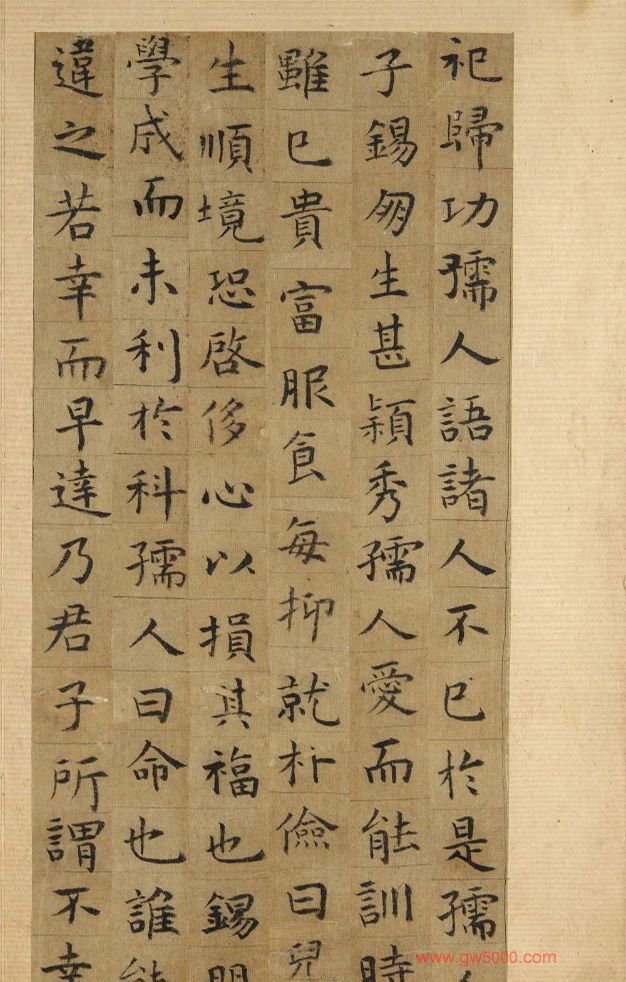 祀歸功孺人語諸人不已於是孺人
子錫朋生甚穎秀孺人愛而能訓時
雖已貴富服食每抑就朴儉曰兒
生順境恐啓侈心以損其福也錫朋
學成而未利於科孺人曰命也誰能
違之若幸而早達乃君子所謂不幸
www.gw5000.com